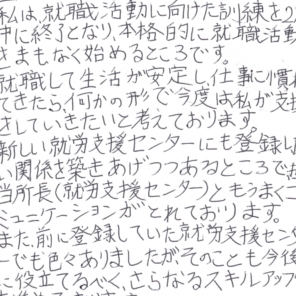 私は、就職活動に向けた訓練を2
中に終了となり、本格的に就職活動
きまもなく始めるところです。
就職して生活が安定し、仕事に慣れ
てきたら何かの形で今度は私が支援
をしていきたいと考えております。
新しい就労支援センターにも登録し
い関係を築きあげつつあるところで
当所長(就労支援センター)ともうまくコ
ミュニケーションがとれております。
また、前に登録していた就労支援セン
ーでも色々ありましたがそのことも今後
に役立てるべく、さらなるスキルアップ